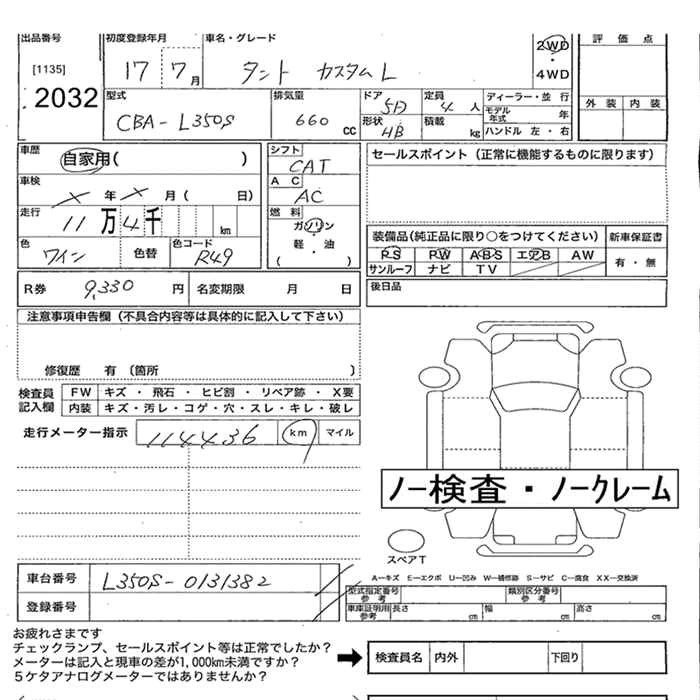 出品番号 初度登録年月 車名・グレード 評価点
[1135] 17 7月 タント カスタムL 2WD・4WD
2032 型式 排気量 ドア 5D 定員 4人 ディーラー・並行 外装 内装
CBA-L350S 660cc 形状 HB 積載 kg モデル年式 年 ハンドル 左・右
車歴 自家用( ) シフト CAT セールスポイント(正常に機能するものに限ります)
車検 X年X月( 日) AC AC
走行 11万4千 km 燃料 ガソリン・軽・油 ( )
装備品(純正品に限り○をつけてください) 新車保証書
色 ワイン 色替 色コード R49 PS PW ABS エアB AW 有・無
サンルーフ ナビ TV
R券 9,330円 名変期限 月 日 後日品
注意事項申告欄(不具合内容等は具体的に記入して下さい)
修復歴 有〔箇所 〕
検査員記入欄 FW キズ・飛石・ヒビ割・リペア跡・X要
内装 キズ・汚レ・コゲ・穴・スレ・キレ・破レ
走行メーター指示 114436 km マイル
ノー検査・ノークレーム
スペアT
A-キズ E-エクボ U-凹み W-補修跡 S-サビ C-腐食 XX-交換済
車台番号 L350S-0131382 型式指定番号参考 類別区分番号参考
登録番号 車庫証明用参考 長さ cm 幅 cm 高さ cm
お疲れさまです
チェックランプ、セールスポイント等は正常でしたか?
メーターは記入と現車の差が1,000km未満ですか?
5ケタアナログメーターではありませんか?
検査員名 内外 下回り